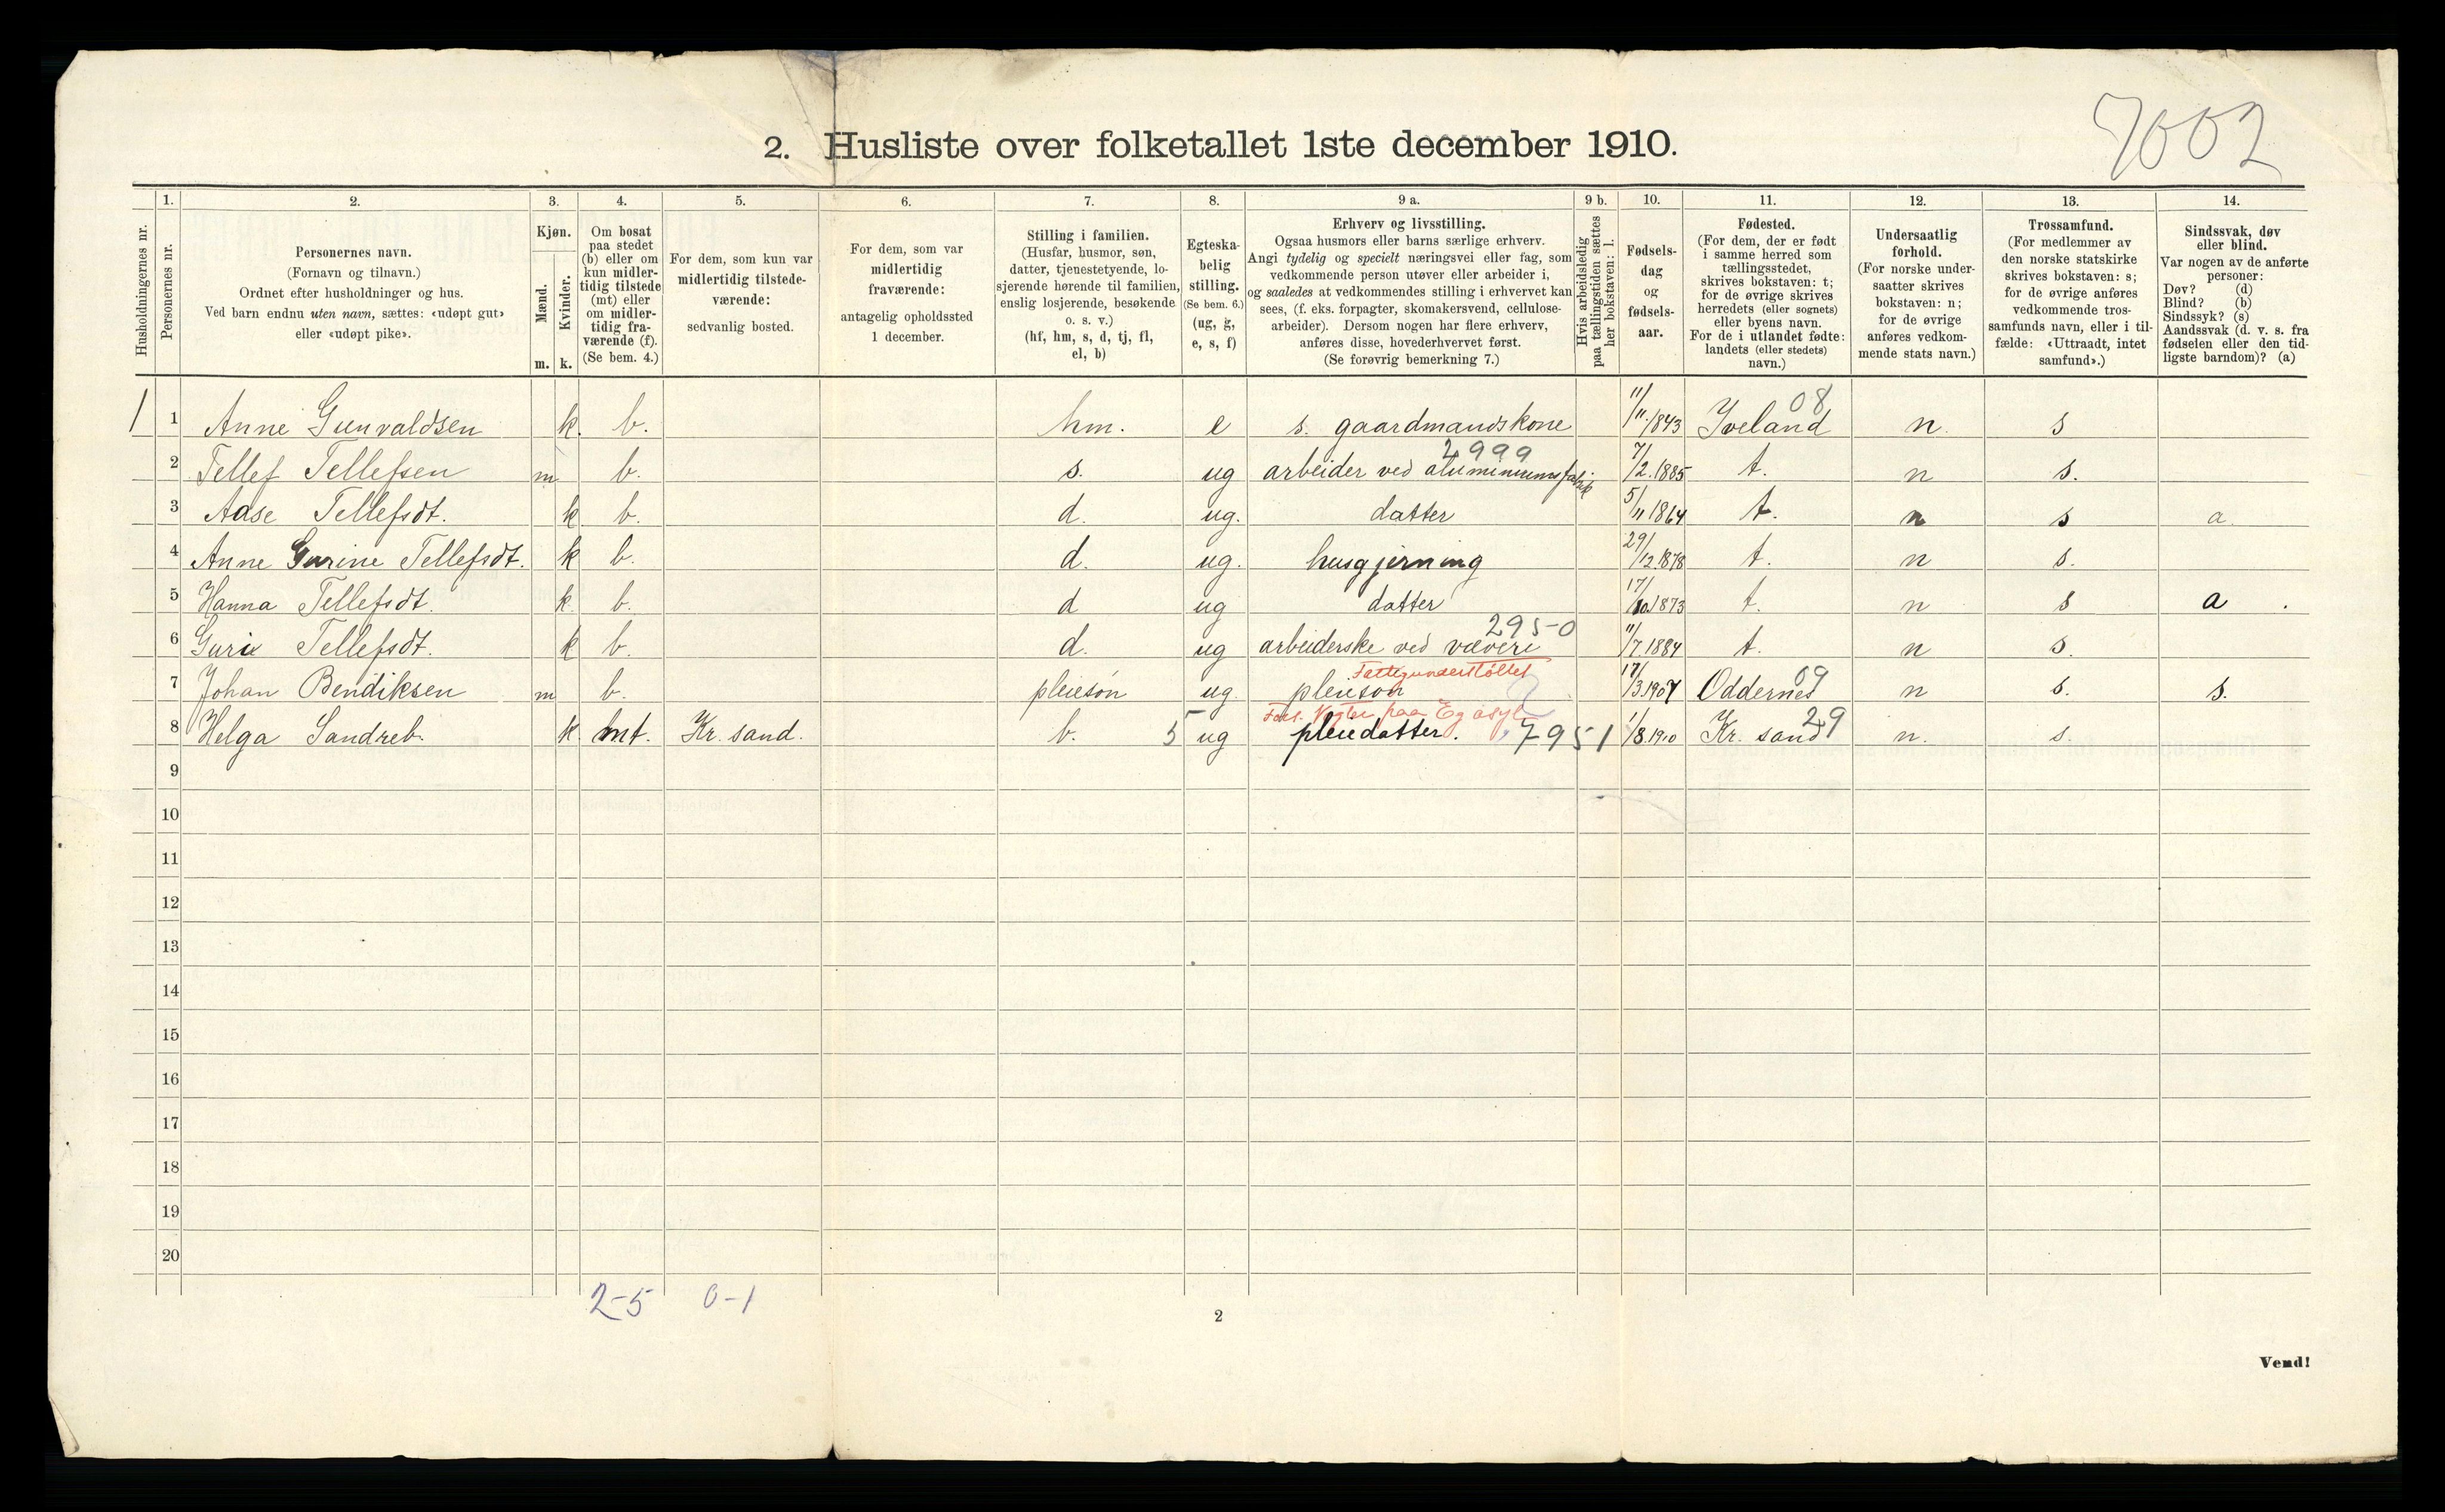 7002
2. Husliste over folketallet 1ste december 1910.
Husholdningernes nr.
1.
Personernes nr.
2.
Personernes navn.
(Fornavn og tilnavn.)
Ordnet efter husholdninger og hus.
Ved barn endnu uten navn, sættes: «udøpt gut»
eller «udøpt pike».
3.
Kjøn.
Mænd.
Kvinder.
m. k.
4.
Om bosat
paa stedet
(b) eller om
kun midler-
tidig tilstede
(mt) eller
om midler-
tidig fra-
værende (f).
(Se bem. 4.)
5.
For dem, som kun var
midlertidig tilstede-
værende:
sedvanlig bosted.
6.
For dem, som var
midlertidig
fraværende:
antagelig opholdssted
1 december.
7.
Stilling i familien.
(Husfar, husmor, søn,
datter, tjenestetyende, lo-
sjerende hørende til familien,
enslig losjerende, besøkende
o. s. v.)
(hf, hm, s, d, tj, fl,
el, b)
8.
Egteska-
belig
stilling.
(Se bem. 6.)
(ug, g,
e, s, f)
9 a.
Erhverv og livsstilling.
Ogsaa husmors eller barns særlige erhverv.
Angi tydelig og specielt næringsvei eller fag, som
vedkommende person utøver eller arbeider i,
og saaledes at vedkommendes stilling i erhvervet kan
sees, (f. eks. forpagter, skomakersvend, cellulose-
arbeider). Dersom nogen har flere erhverv,
anføres disse, hovederhvervet først.
(Se forøvrig bemerkning 7.)
9 b.
Hvis arbeidsledig
paa tællingstiden sættes
her bokstaven: l.
10.
Fødsels-
dag
og
fødsels-
aar.
11.
Fødested.
(For dem, der er født
i samme herred som
tællingsstedet,
skrives bokstaven: t;
for de øvrige skrives
herredets (eller sognets)
eller byens navn.
For de i utlandet fødte:
landets (eller stedets)
navn.)
12.
Undersaatlig
forhold.
(For norske under-
saatter skrives
bokstaven: n;
for de øvrige
anføres vedkom-
mende stats navn.)
13.
Trossamfund.
(For medlemmer av
den norske statskirke
skrives bokstaven: s;
for de øvrige anføres
vedkommende tros-
samfunds navn, eller i til-
fælde: «Uttraadt, intet
samfund».)
14.
Sindssvak, døv
eller blind.
Var nogen av de anførte
personer:
Døv? (d)
Blind? (b)
Sindssyk? (s)
Aandssvak (d. v. s. fra
fødselen eller den tid-
ligste barndom)? (a)
1 1 Anne Gunvaldsen k. b. hm. e s. gaardmandskone 11/11.1843 Iveland 08 n s
2999
2 Tellef Tellefsen m b. s. ug arbeider ved aluminiumsfabrik 7/2.1885 t. n s.
3 Aase Tellefsdt. k b. d. ug. datter 5/11 1864 t. n s a.
4 Anne Gurine Tellefsdt. k b. d. ug. husgjerning 29/12.1878 t. n s.
5 Hanna Tellefsdt. k. b. d ug datter 17/10.1873 t. n s a .
2950
6 Guri Tellefsdt. k b. d. ug arbeiderske ved væveri 11/7.1884 t. n s.
Fattigunderstøttet
7 Johan Bendiksen m b. pleiesön ug. pleiesön 17/3.1907 Oddernes 09 n s. s.
Fars. Vogter paa Eg asyl
8 Helga Sandreb. k. mt. Kr. sand. b. 5 ug pleiedatter. 7951 1/8.1910 Kr. sand 29 n. s.
9
10
11
12
13
14
15
16
17
18
19
20
2-5 0-1
2
Vend!